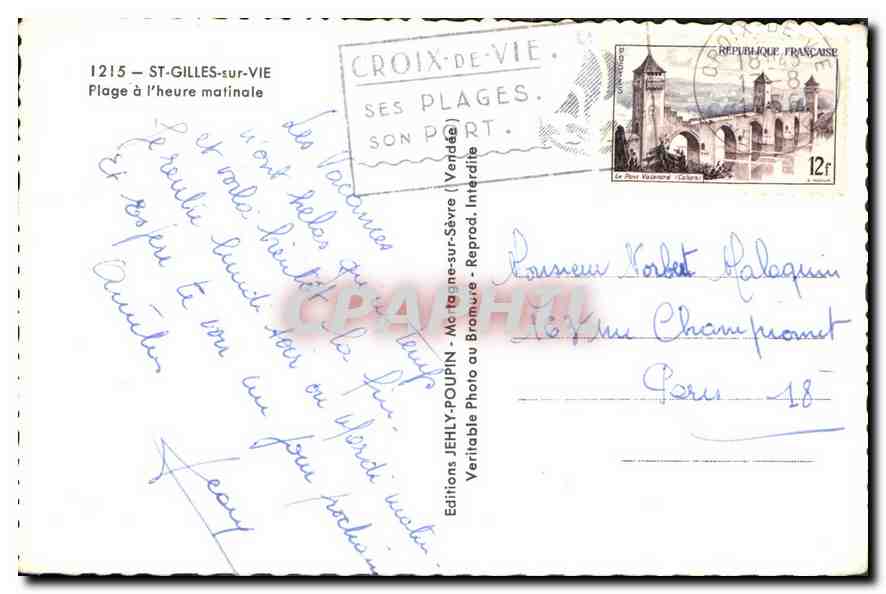 1215 — ST-GILLES-sur-VIE
Plage à l'heure matinale
CROIX-DE-VIE.
SES PLAGES.
SON PORT.
CROIX-DE-VIE
18H45
POSTES
RÉPUBLIQUE FRANÇAISE
Le Pont Valentré (Cahors)
12f
Les Vacances
n'ont helas qu'un temps
et voilà bientôt la fin.
Je rentre lundi soir ou Mardi matin
Et espère te voir un jour prochain
Amitiés
Editions JEHLY-POUPIN - Mortagne-sur-Sèvre (Vendée)
Veritable Photo au Bromure - Reprod. Interdite
Monsieur Norbert Malaquin
rue Championnet
Paris 18
CPAPHIL